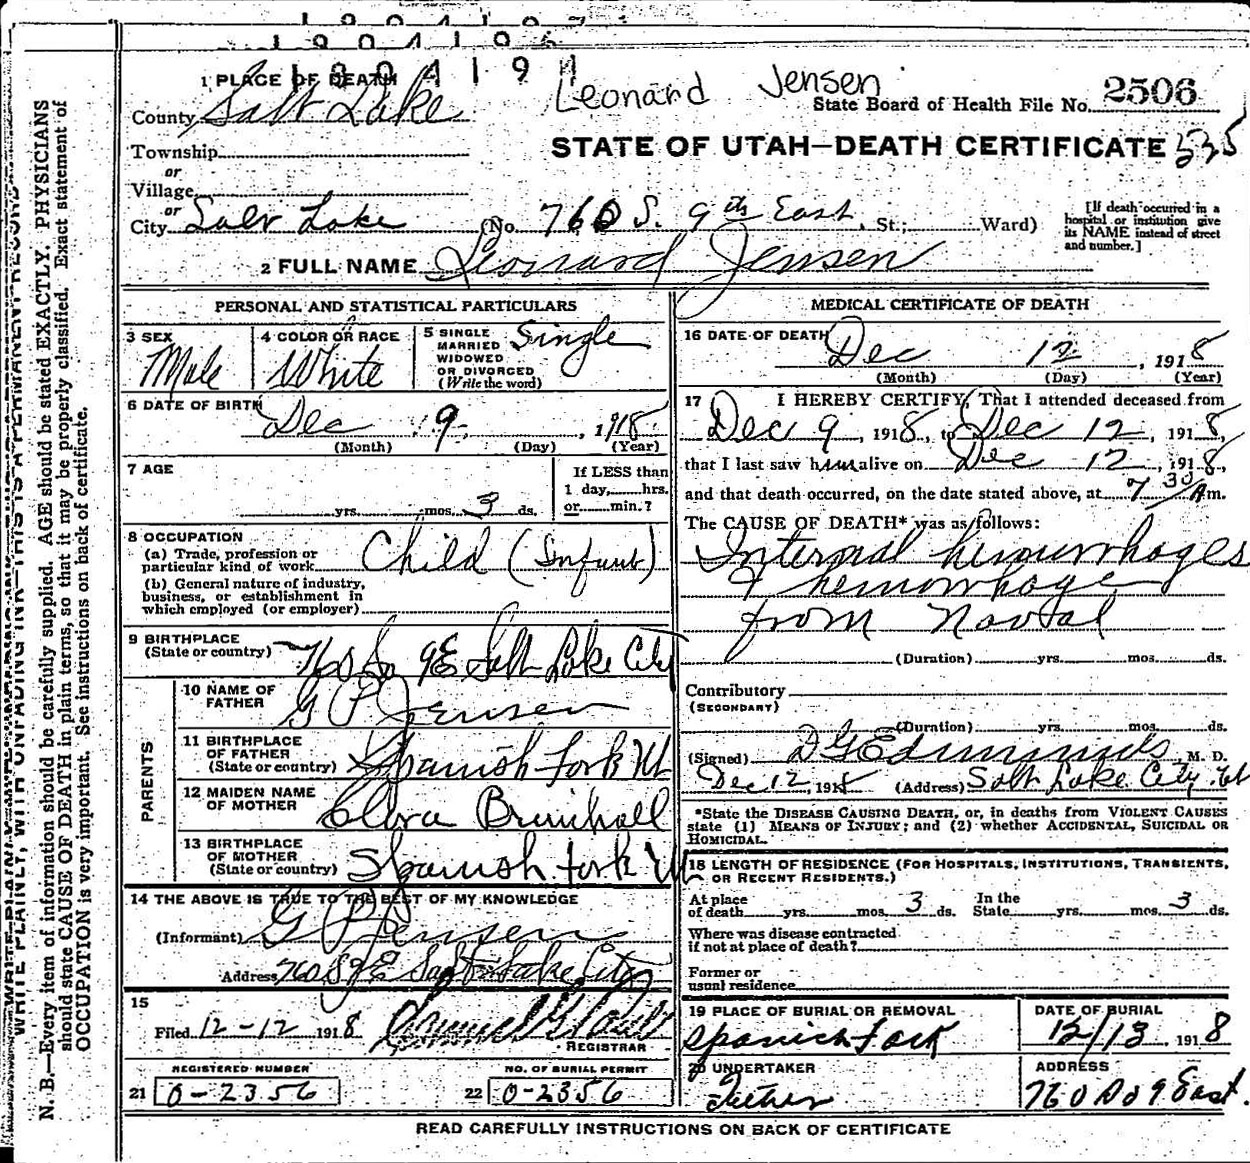 1904197
Leonard Jensen
1 PLACE OF DEATH
State Board of Health File No. 2506
County Salt Lake
STATE OF UTAH—DEATH CERTIFICATE 535
Township
or
Village
or
City Salt Lake (No. 760 S. 9th East, St.; Ward)
[If death occurred in a
hospital or institution give
its NAME instead of street
and number.]
2 FULL NAME Leonard Jensen
PERSONAL AND STATISTICAL PARTICULARS
3 SEX Male
4 COLOR OR RACE White
5 SINGLE
MARRIED
WIDOWED
OR DIVORCED
(Write the word) Single
6 DATE OF BIRTH Dec 9, 1918
(Month) (Day) (Year)
7 AGE
yrs. mos. 3 ds.
If LESS than
1 day, hrs.
or min.?
8 OCCUPATION
(a) Trade, profession or
particular kind of work Child (Infant)
(b) General nature of industry,
business, or establishment in
which employed (or employer)
9 BIRTHPLACE
(State or country) 760 So 9E Salt Lake City
PARENTS
10 NAME OF
FATHER G P Jensen
11 BIRTHPLACE
OF FATHER
(State or country) Spanish Fork Ut
12 MAIDEN NAME
OF MOTHER Clora Brimhall
13 BIRTHPLACE
OF MOTHER
(State or country) Spanish Fork Ut
14 THE ABOVE IS TRUE TO THE BEST OF MY KNOWLEDGE
(Informant) G P Jensen
Address 760 S 9 E Salt Lake City
15
Filed 12-12 1918
REGISTRAR
REGISTERED NUMBER
21 0-2356
NO. OF BURIAL PERMIT
22 0-2356
MEDICAL CERTIFICATE OF DEATH
16 DATE OF DEATH Dec 12, 1918
(Month) (Day) (Year)
17 I HEREBY CERTIFY, That I attended deceased from
Dec 9, 1918, to Dec 12, 1918,
that I last saw him alive on Dec 12, 1918,
and that death occurred, on the date stated above, at 7 30/A m.
The CAUSE OF DEATH* was as follows:
Internal hemurrhages
& hemorrhage
from Naval
(Duration) yrs. mos. ds.
Contributory
(SECONDARY)
(Duration) yrs. mos. ds.
(Signed) D G Edmunds, M. D.
Dec 12, 1918 (Address) Salt Lake City Ut
*State the DISEASE CAUSING DEATH, or, in deaths from VIOLENT CAUSES
state (1) MEANS OF INJURY; and (2) whether ACCIDENTAL, SUICIDAL OR
HOMICIDAL.
18 LENGTH OF RESIDENCE (FOR HOSPITALS, INSTITUTIONS, TRANSIENTS,
OR RECENT RESIDENTS.)
At place
of death yrs. mos. 3 ds.
In the
State yrs. mos. 3 ds.
Where was disease contracted
if not at place of death?
Former or
usual residence
19 PLACE OF BURIAL OR REMOVAL
Spanish Fork
DATE OF BURIAL
12/13, 1918
20 UNDERTAKER
Father
ADDRESS
760 So 9 East.
READ CAREFULLY INSTRUCTIONS ON BACK OF CERTIFICATE
WRITE PLAINLY, WITH UNFADING INK—THIS IS A PERMANENT RECORD
N. B.—Every item of information should be carefully supplied. AGE should be stated EXACTLY. PHYSICIANS
should state CAUSE OF DEATH in plain terms, so that it may be properly classified. Exact statement of
OCCUPATION is very important. See instructions on back of certificate.